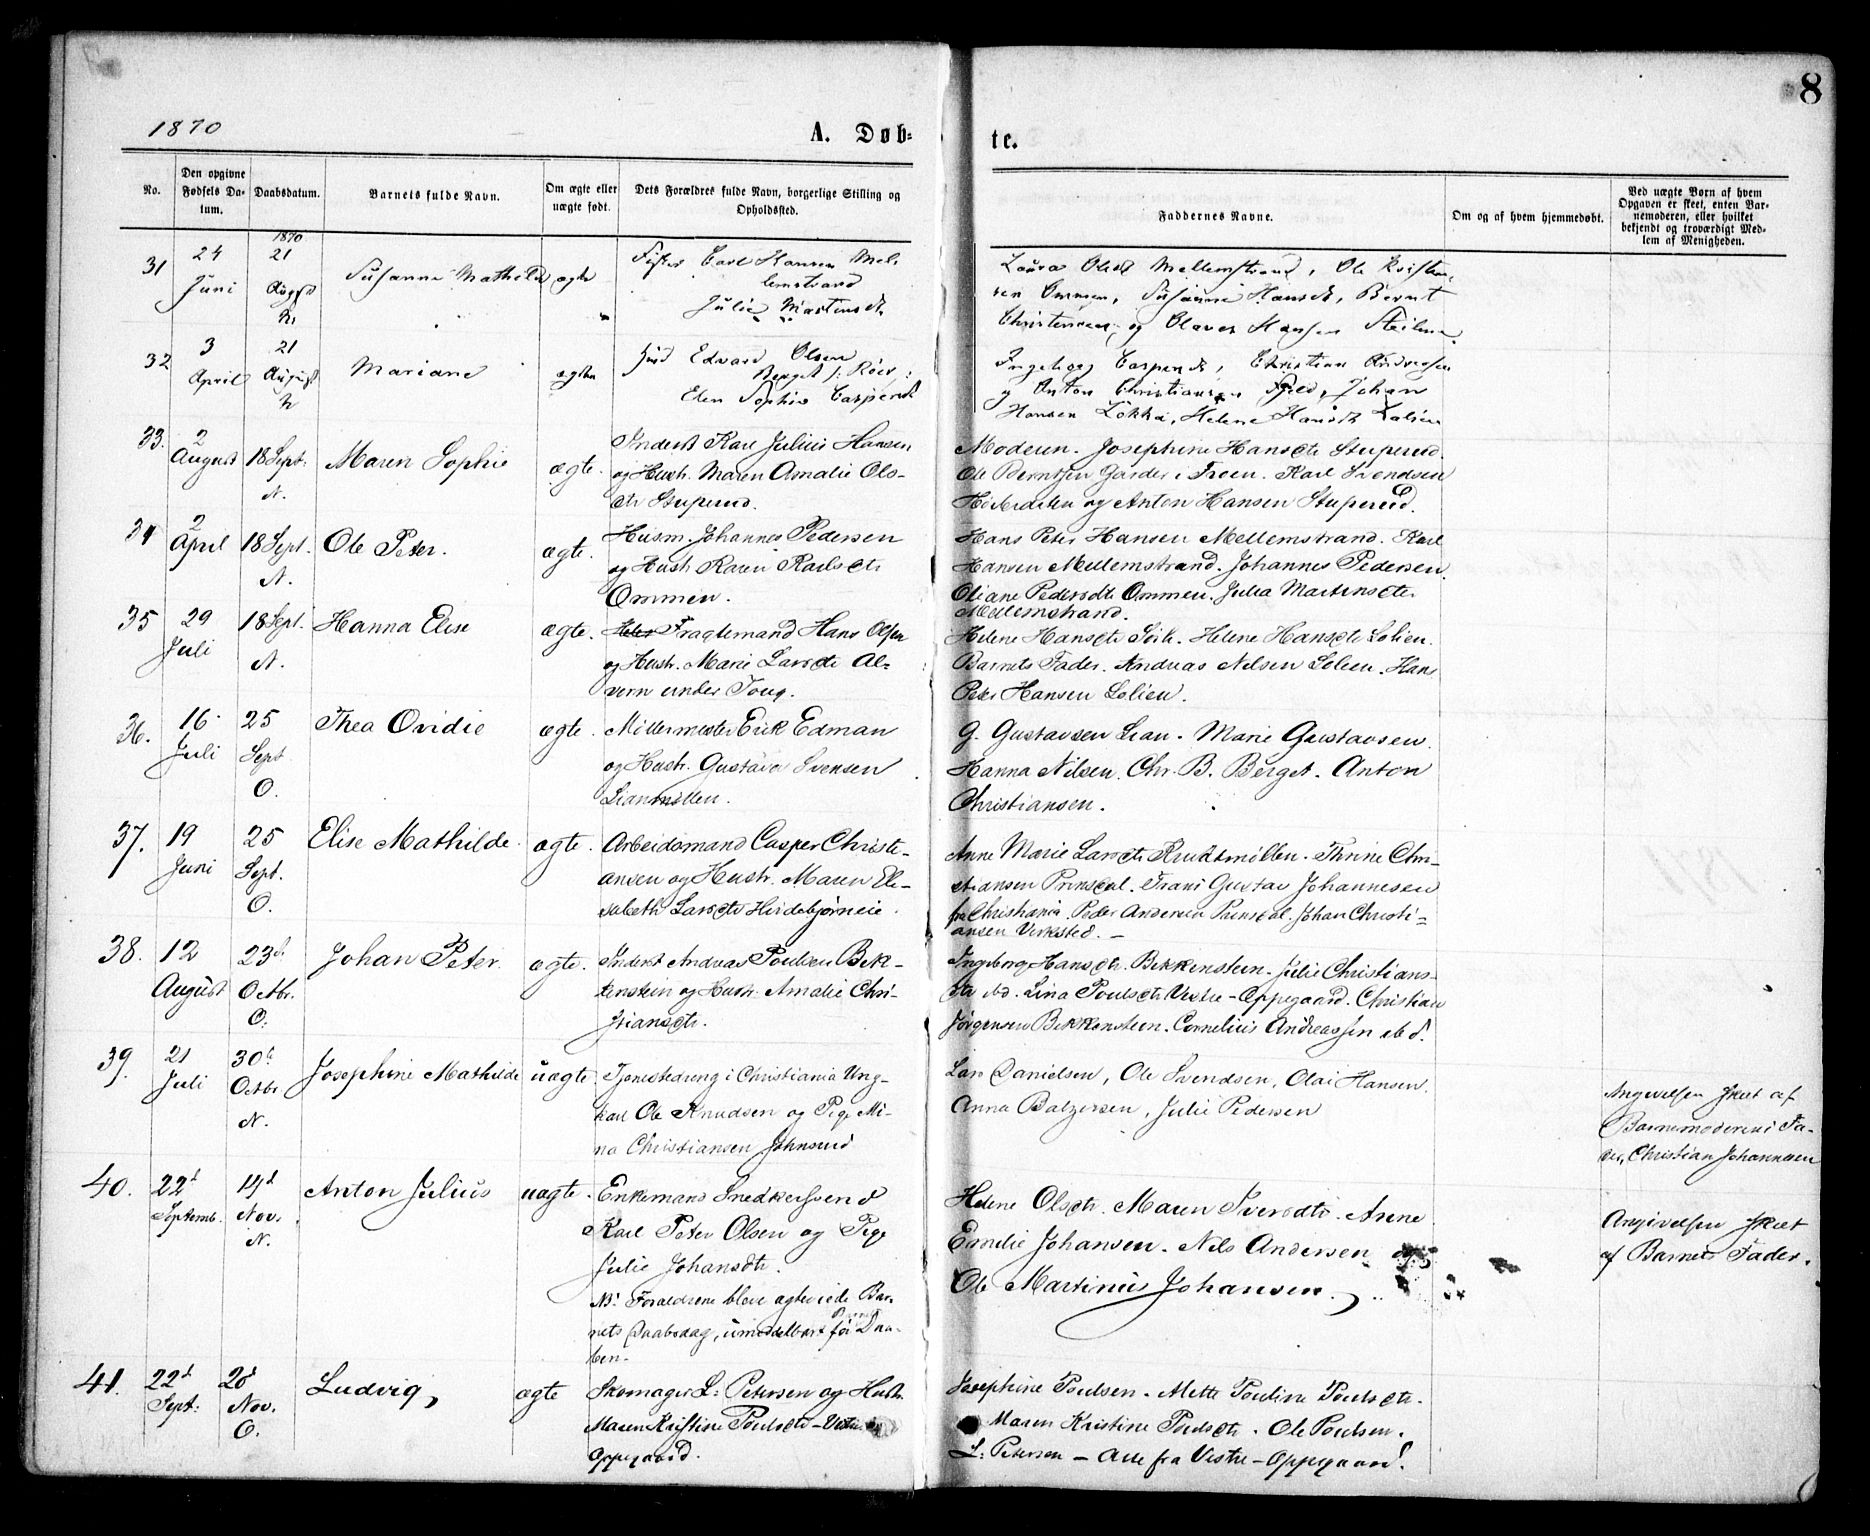 8
1870
A. Døb-
te.
No.
Den opgivne Fødsels Da-tum.
Daabsdatum.
Barnets fulde Navn.
Om ægte eller uægte født.
Dets Forældres fulde Navn, borgerlige Stilling og Opholdssted.
Faddernes Navne.
Om og af hvem hjemmedøbt.
Ved uægte Born af hvem Opgaven er skeet, enten Bar-nemoderen, eller hvilket bekjendt og troværdigt Med-lem af Menigheden.
31
24 Juni
1870 21 August
Susanne Mathilde
ægte
Fisker Carl Hansen Mel-
lemstrand
Julie Martinsdt.
Laura Olsdt Mellemstrand, Ole Kristen-
sen Ommen, Susanne Hansdt, Bernt
Christensen og Olaves Hansen
32
3 April
21 August
Mariane
ægte
Edvard Olsen
Berget
Elen Sophie Caspersdt
Ingeborg Caspersdt, Christian Andreasen
og Anton Christiansen Fjeld, Johan
Hansen Løkka, Helene Hansdt Kolien
33.
2 August
18 Sept. N.
Maren Sophie
ægte.
Inderst Karl Julius Hansen
og Hustr. Maren Amalie Ols-
dtr Stuperud.
Moderen. Josephine Hansdtr Stuperud.
Ole Berntsen Garder i Froen. Karl Svendsen
og Anton Hansen Stuperud.
34
2 April
18 Sept. N.
Ole Peter.
ægte.
Husm. Johannes Pedersen
og Hustr Karen Karlsdtr
Ommen.
Hans Peter Hansen Mellemstrand. Karl
Hansen Mellemstrand. Johannes Pedersen.
Oliane Pedersdtr Ommen. Julia Martinsdtr
Mellemstrand.
35
29 Juli
18 Sept. N.
Hanna Elise
ægte.
Fragtemand Hans Olsen
og Hustr. Marie Larsdtr Al-
vern under Toug.
Helene Hansdtr Solli. Helene Hansdtr Solien.
Barnets Fader. Andreas Nilsen Solien. Hans
Peter Hansen Solien.
36.
16 Juli
25 Sept O.
Thea Ovidie
ægte.
Møllermester Erik Edman
og Hustr. Gustava Svensen
Lianmøllen.
G. Gustavsen Lian. Marie Gustavsen.
Hanna Nilsen. Chr. B. Berget. Anton
Christiansen.
37.
19 Juni
25 Sept. O.
Elise Mathilde.
ægte.
Arbeidsmand Casper Christi-
ansen og Hustr. Maren Ele-
sabeth Larsdtr Hvidebjørneie.
Anne Marie Larsdtr Kruttmøllen. Thrine Chri-
stiansen Prinsdal. Frans Gustav Johannesen
fra Christiania. Peder Andersen Prinsdal. Johan Christi-
ansen Verksted. —
38.
12 August
23d Octbr. O.
Johan Peter.
ægte.
Inderst Andreas Poulsen Bek-
kensteen og Hustr. Amalie Chri-
stiansdtr.
Ingeborg Hansdtr. Bekkensteen. Julie Christians-
dtr ibd. Lina Poulsdtr Vestre-Oppegaard. Christian
Jørgensen Bekkensteen. Cornelius Andreassen ibd.
39.
21 Juli
30te Octbr N.
Josephine Mathilde
uægte
Tjenestedreng i Christiania Ung-
karl Ole Knudsen og Pige Mi-
na Christiansen Johnsrud
Lars Danielsen, Ole Svendsen, Olai Hansen.
Anna Balzersen, Julie Pedersen
Angivelsen skeet af
Barnemoderens Fa-
der, Christian Johannesen
40.
22d Septemb.
19d Nov. N.
Anton Julius
uægte.
Enkemand Snedkersvend
Karl Peter Olsen og Pige
Julie Johansdtr.
NB. Forældrene bleve ægteviede Bar-
nets Daabsdag, umiddelbart før Daa-
ben.
Helene Olsdtr. Maren Sversdtr. Anne
Emilie Johansen. Nils Andersen og
Ole Martinius Johansen.
Angivelsen skeet
af Barnets Fader.
41.
22d Sept.
20d Nov. O.
Ludvig,
ægte
Skomager L. Petersen og Hustr.
Maren Kristine Poulsdtr - Vestre
Oppegaard.
Josephine Poulsen. Mette Pouline Poulsdtr.
Maren Kristine Poulsdtr. Ole Poulsen.
L. Petersen — Alle fra Vestre-Oppegaard.